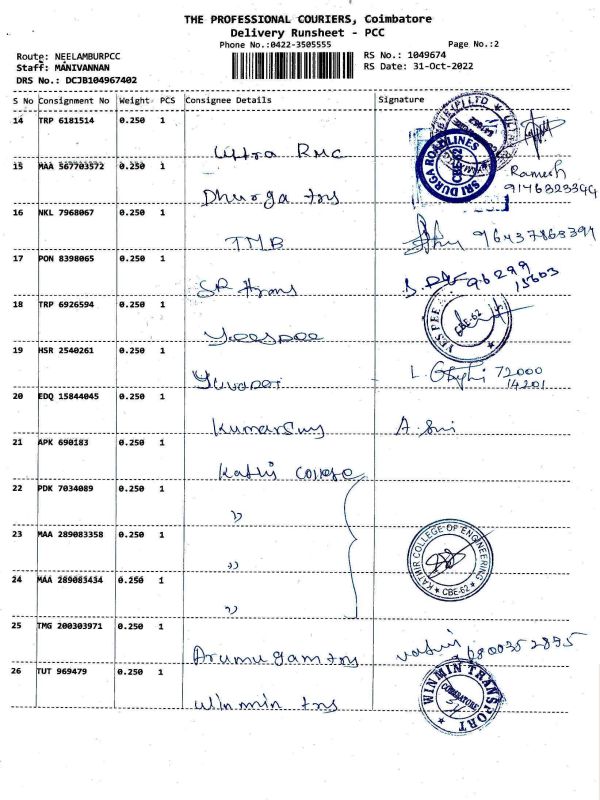 THE PROFESSIONAL COURIERS, Coimbatore
Delivery Runsheet - PCC
Phone No.:0422-3505555
Page No.:2
Route: NEELAMBURPCC
RS No.: 1049674
Staff: MANIVANNAN
RS Date: 31-Oct-2022
DRS No.: DCJB104967402
S No Consignment No Weight PCS Consignee Details Signature
14 TRP 6181514 0.250 1
Ultra RMC
15 MAA 567703572 0.250 1
SRI DURGA ROADLINES CBE-62
Dhurga tns
Ramesh
9146323394
16 NKL 7968067 0.250 1
TMB
17 PON 8398065 0.250 1
SR trans
96299
15603
18 TRP 6926594 0.250 1
Yeespee
YES PEE
CBE-62
19 HSR 2540261 0.250 1
72000
14201
20 EDQ 15844045 0.250 1
Kumarguy A. Sri
21 APK 690183 0.250 1
Kathir College
22 PDK 7034089 0.250 1
"
23 MAA 289083358 0.250 1
"
KATHIR COLLEGE OF ENGINEERING
CBE-62
24 MAA 289083434 0.250 1
"
25 TMG 200303971 0.250 1
Arumugam tns
9680035 2895
26 TUT 969479 0.250 1
Winmin tns
WINMIN TRANSPORT
COIMBATORE